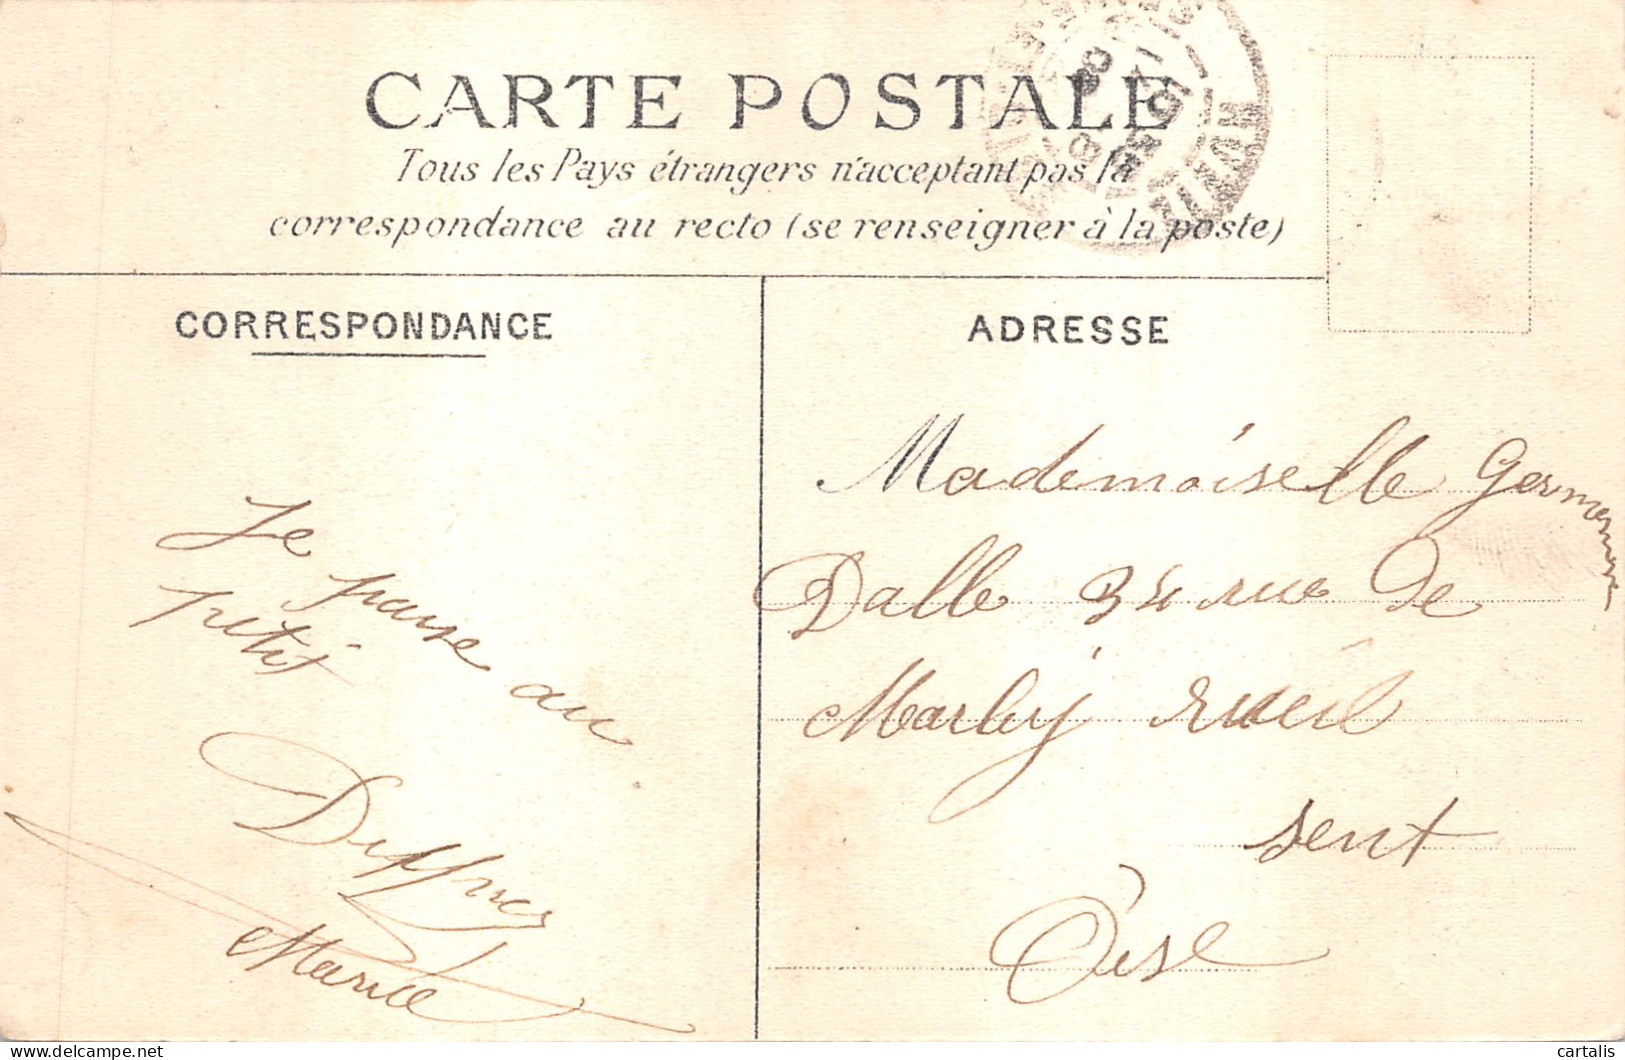 CARTE POSTALE
Tous les Pays étrangers n'acceptant pas la
correspondance au recto (se renseigner à la poste)
CORRESPONDANCE
Je pense au
petit
Maurice
ADRESSE
Mademoiselle Germaine
Dalle 34 rue de
Marly rueil
sent
Oise
delcampe.net
cartalis